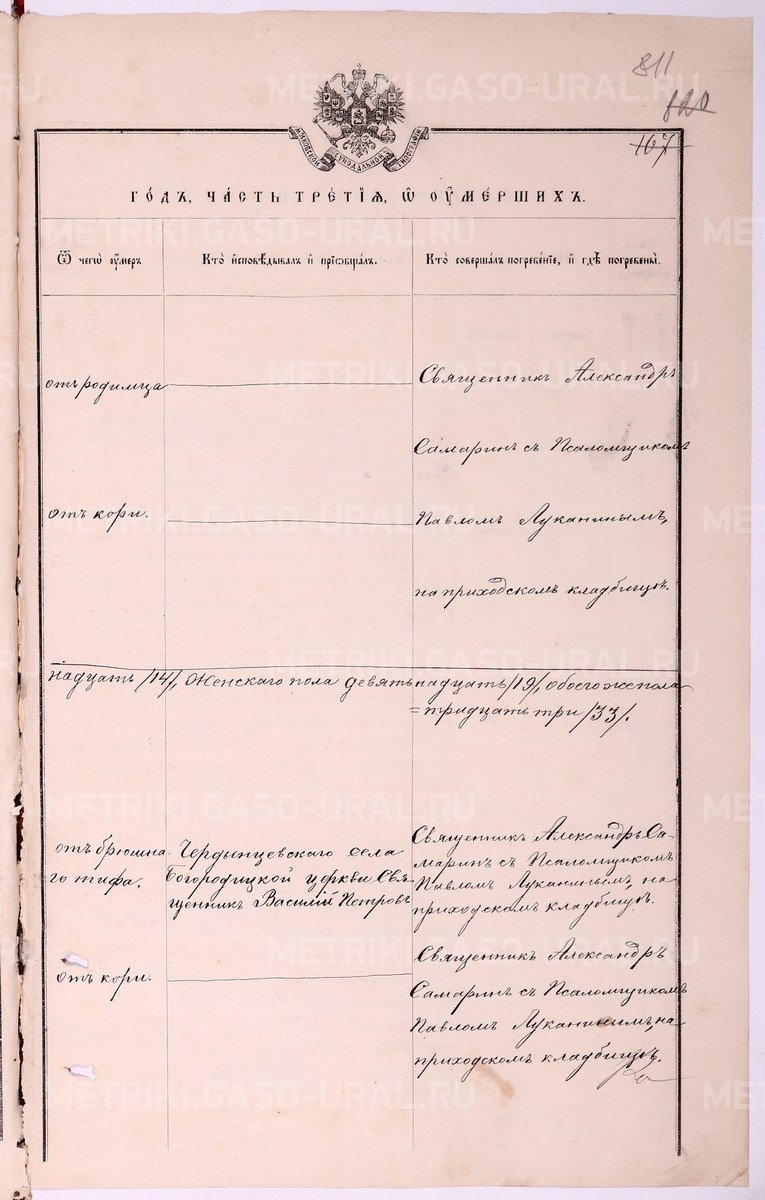 811
120
167
МОСКОВСКОЙ СУНОДАЛЬНОЙ ТИПОГРАФІИ
ГО́ДЪ, ЧА́СТЬ ТРЕ́ТІѦ, Ѿ ОУМЕ́РШИХЪ.
Ѿ чегѡ̀ оу́меръ
Кто̀ и҆сповѣ́дывалъ и҆ прїѡбща́лъ.
Кто̀ соверша́лъ погребе́нїе, и҆ гдѣ̀ погребены̀.
отъ родимца
Священникъ Александръ
Самаринъ съ Псаломщикомъ
отъ кори.
Павломъ Луканинымъ,
на приходскомъ кладбищѣ.
надцать /14/, Женскаго пола девятьнадцать /19/, обоего же пола
= тридцать три /33/.
отъ брюшна
го тифа.
Чердынцевскаго села
Богородицкой церкви Свя-
щенникъ Василій Петровъ
Священникъ Александръ Са-
маринъ съ Псаломщикомъ
Павломъ Луканинымъ, на
приходскомъ кладбищѣ.
отъ кори.
Священникъ Александръ
Самаринъ съ Псаломщикомъ
Павломъ Луканинымъ, на
приходскомъ кладбищѣ.
METRIKI.GASO-URAL.RU